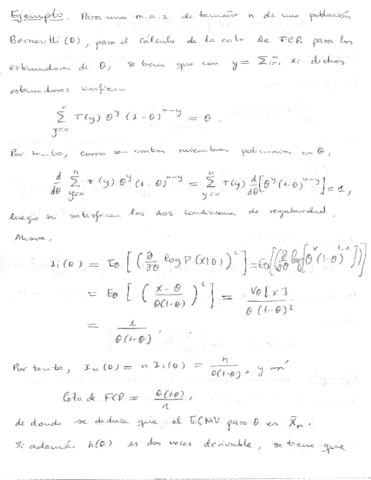 Ejemplo. Para una m.a.s. de tamaño n de una población
Bernoulli (θ), para el cálculo de la cota de FCR para los
estimadores de θ, se tiene que con y = Σⁿᵢ₌₁ xᵢ dichos
estimadores verifican
Σⁿ_{y=0} T(y) θ^y (1-θ)^{n-y} = θ.
Por tanto, como son ambos miembros polinomios en θ,
d/dθ Σⁿ_{y=0} T(y) θ^y (1-θ)^{n-y} = Σⁿ_{y=0} T(y) d/dθ [θ^y (1-θ)^{n-y}] = 1,
luego se satisfacen las dos condiciones de regularidad.
Ahora,
I₁(θ) = E_θ [(∂/∂θ log P(X|θ))²] = E_θ [(∂/∂θ log [θ^x (1-θ)^{1-x}])²]
= E_θ [(x-θ / θ(1-θ))²] = V_θ[x] / θ(1-θ)²
= 1 / θ(1-θ).
Por tanto, Iₙ(θ) = n I₁(θ) = n / θ(1-θ), y así
Cota de FCR = θ(1-θ) / n,
de donde se deduce que el ECMV para θ es X̄ₙ.
Si además h(θ) es dos veces derivable, se tiene que